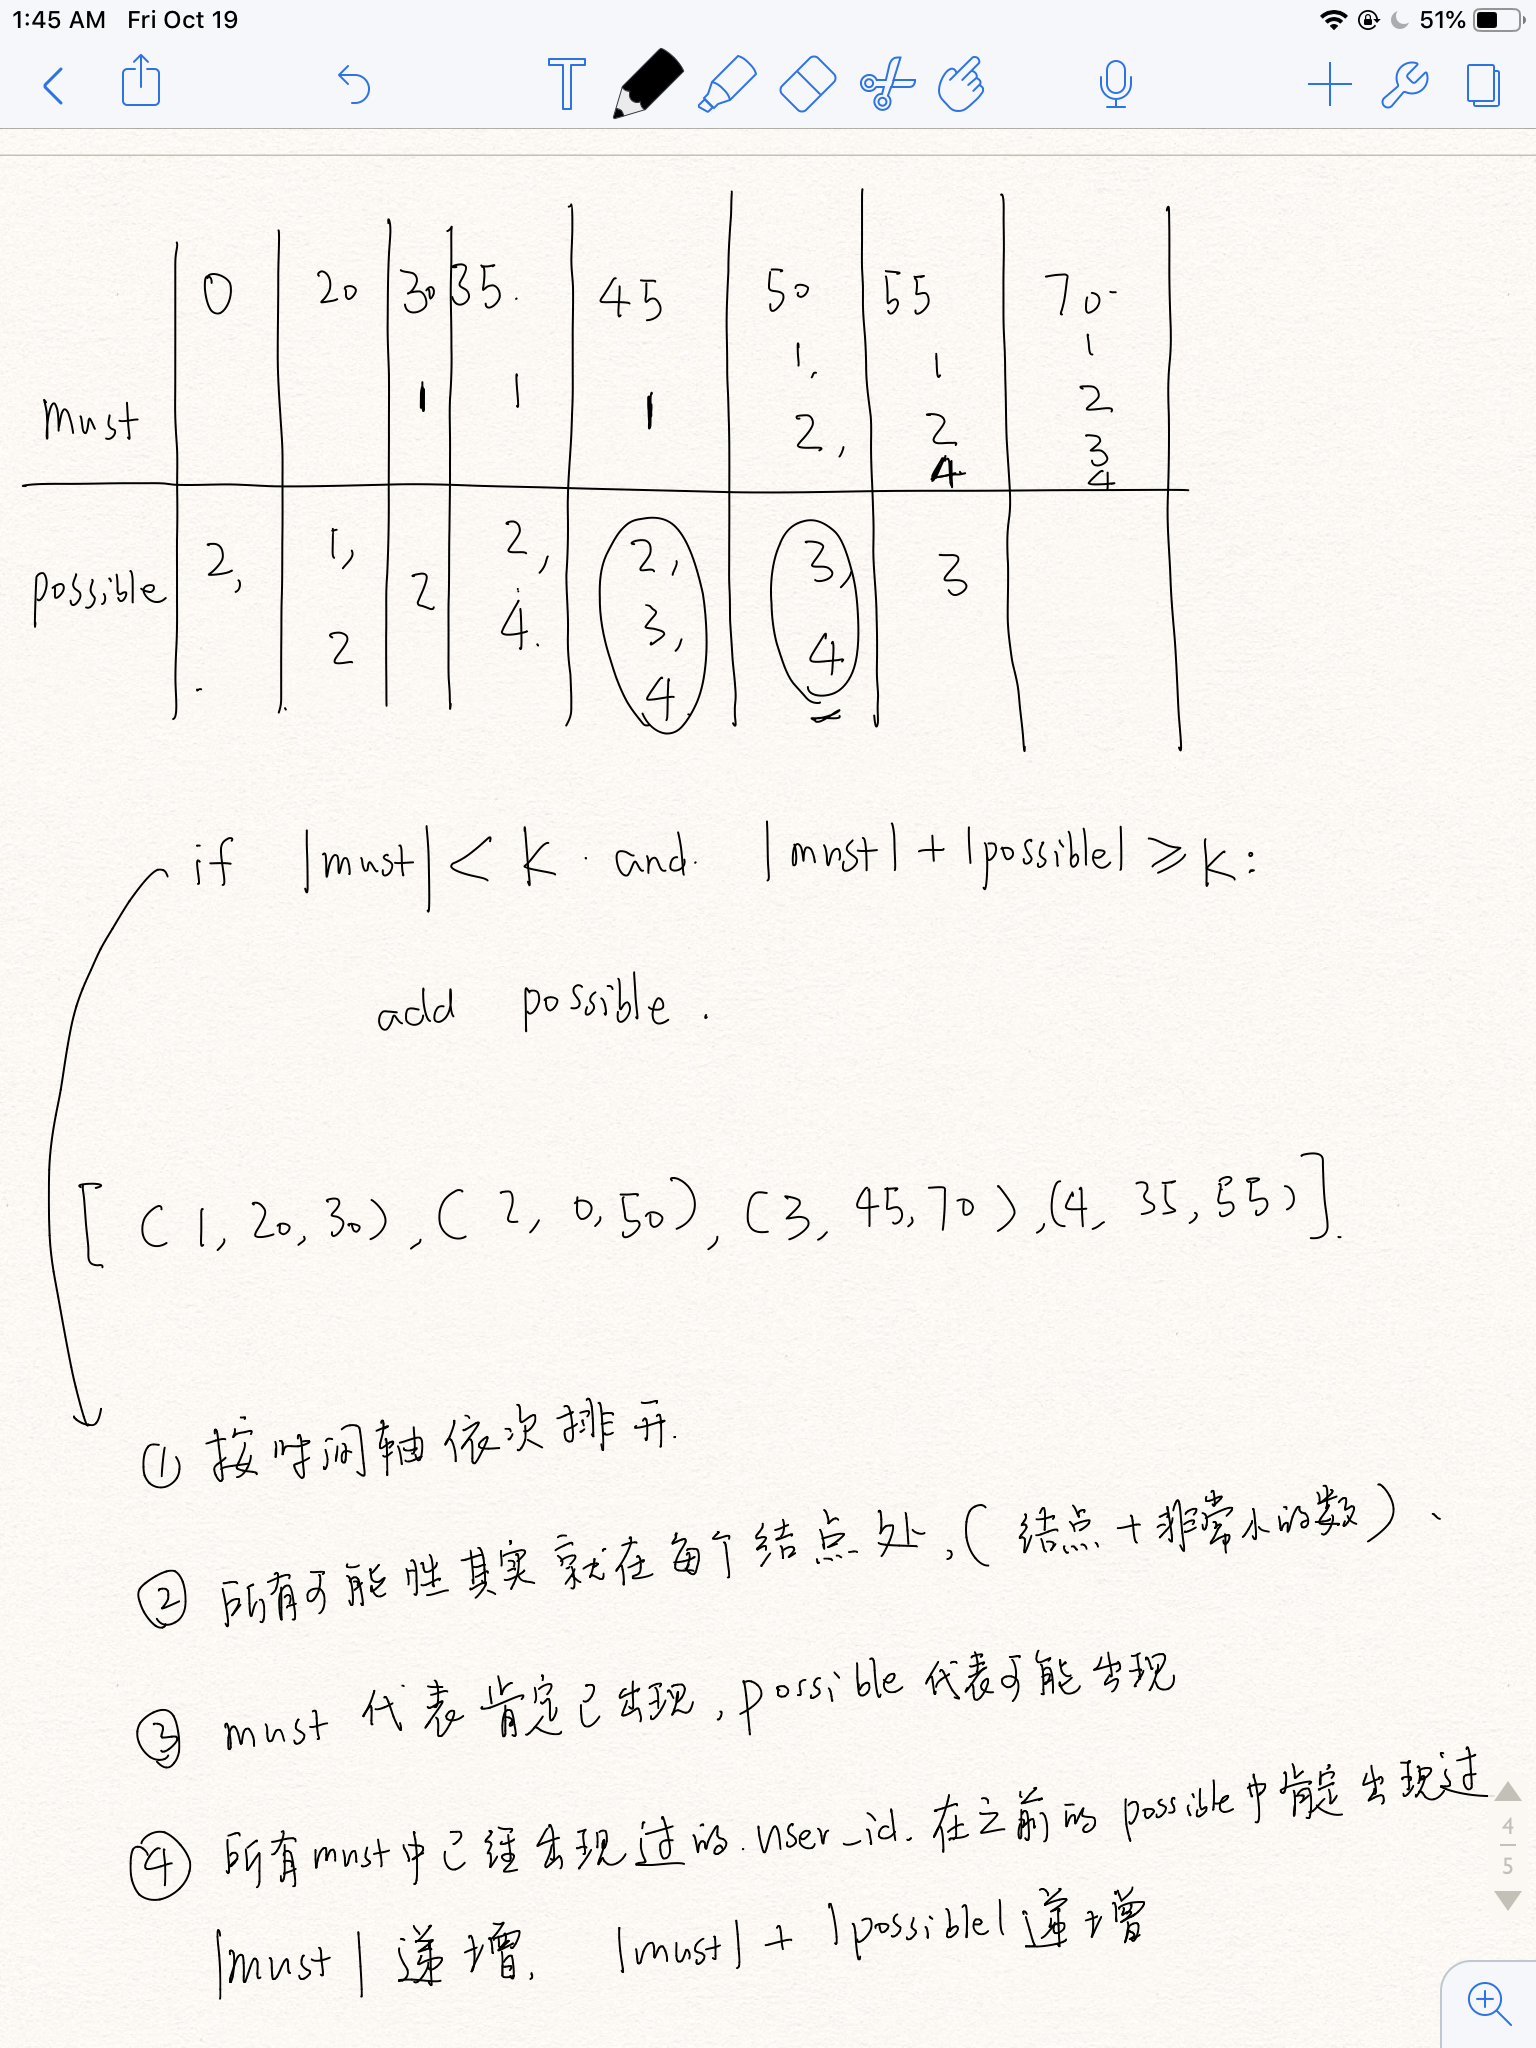 1:45 AM Fri Oct 19 51%
T
0 20 30 35. 45 50 55 70
must 1 1 1 1, 2, 1 2 4 1 2 3 4
possible 2, 1, 2 2 2, 4. 2, 3, 4 3, 4 3
if |must| < K and |must| + |possible| ≥ K:
add possible.
[(1, 20, 30), (2, 0, 50), (3, 45, 70), (4, 35, 55)].
① 按时间轴依次排开.
② 所有可能性其实就在每个结点处, (结点+非常小的数)、
③ must 代表肯定已出现, possible 代表可能出现
④ 所有must中已经出现过的 user_id. 在之前的 possible中肯定出现过
|must| 递增, |must| + |possible| 递增
4
5